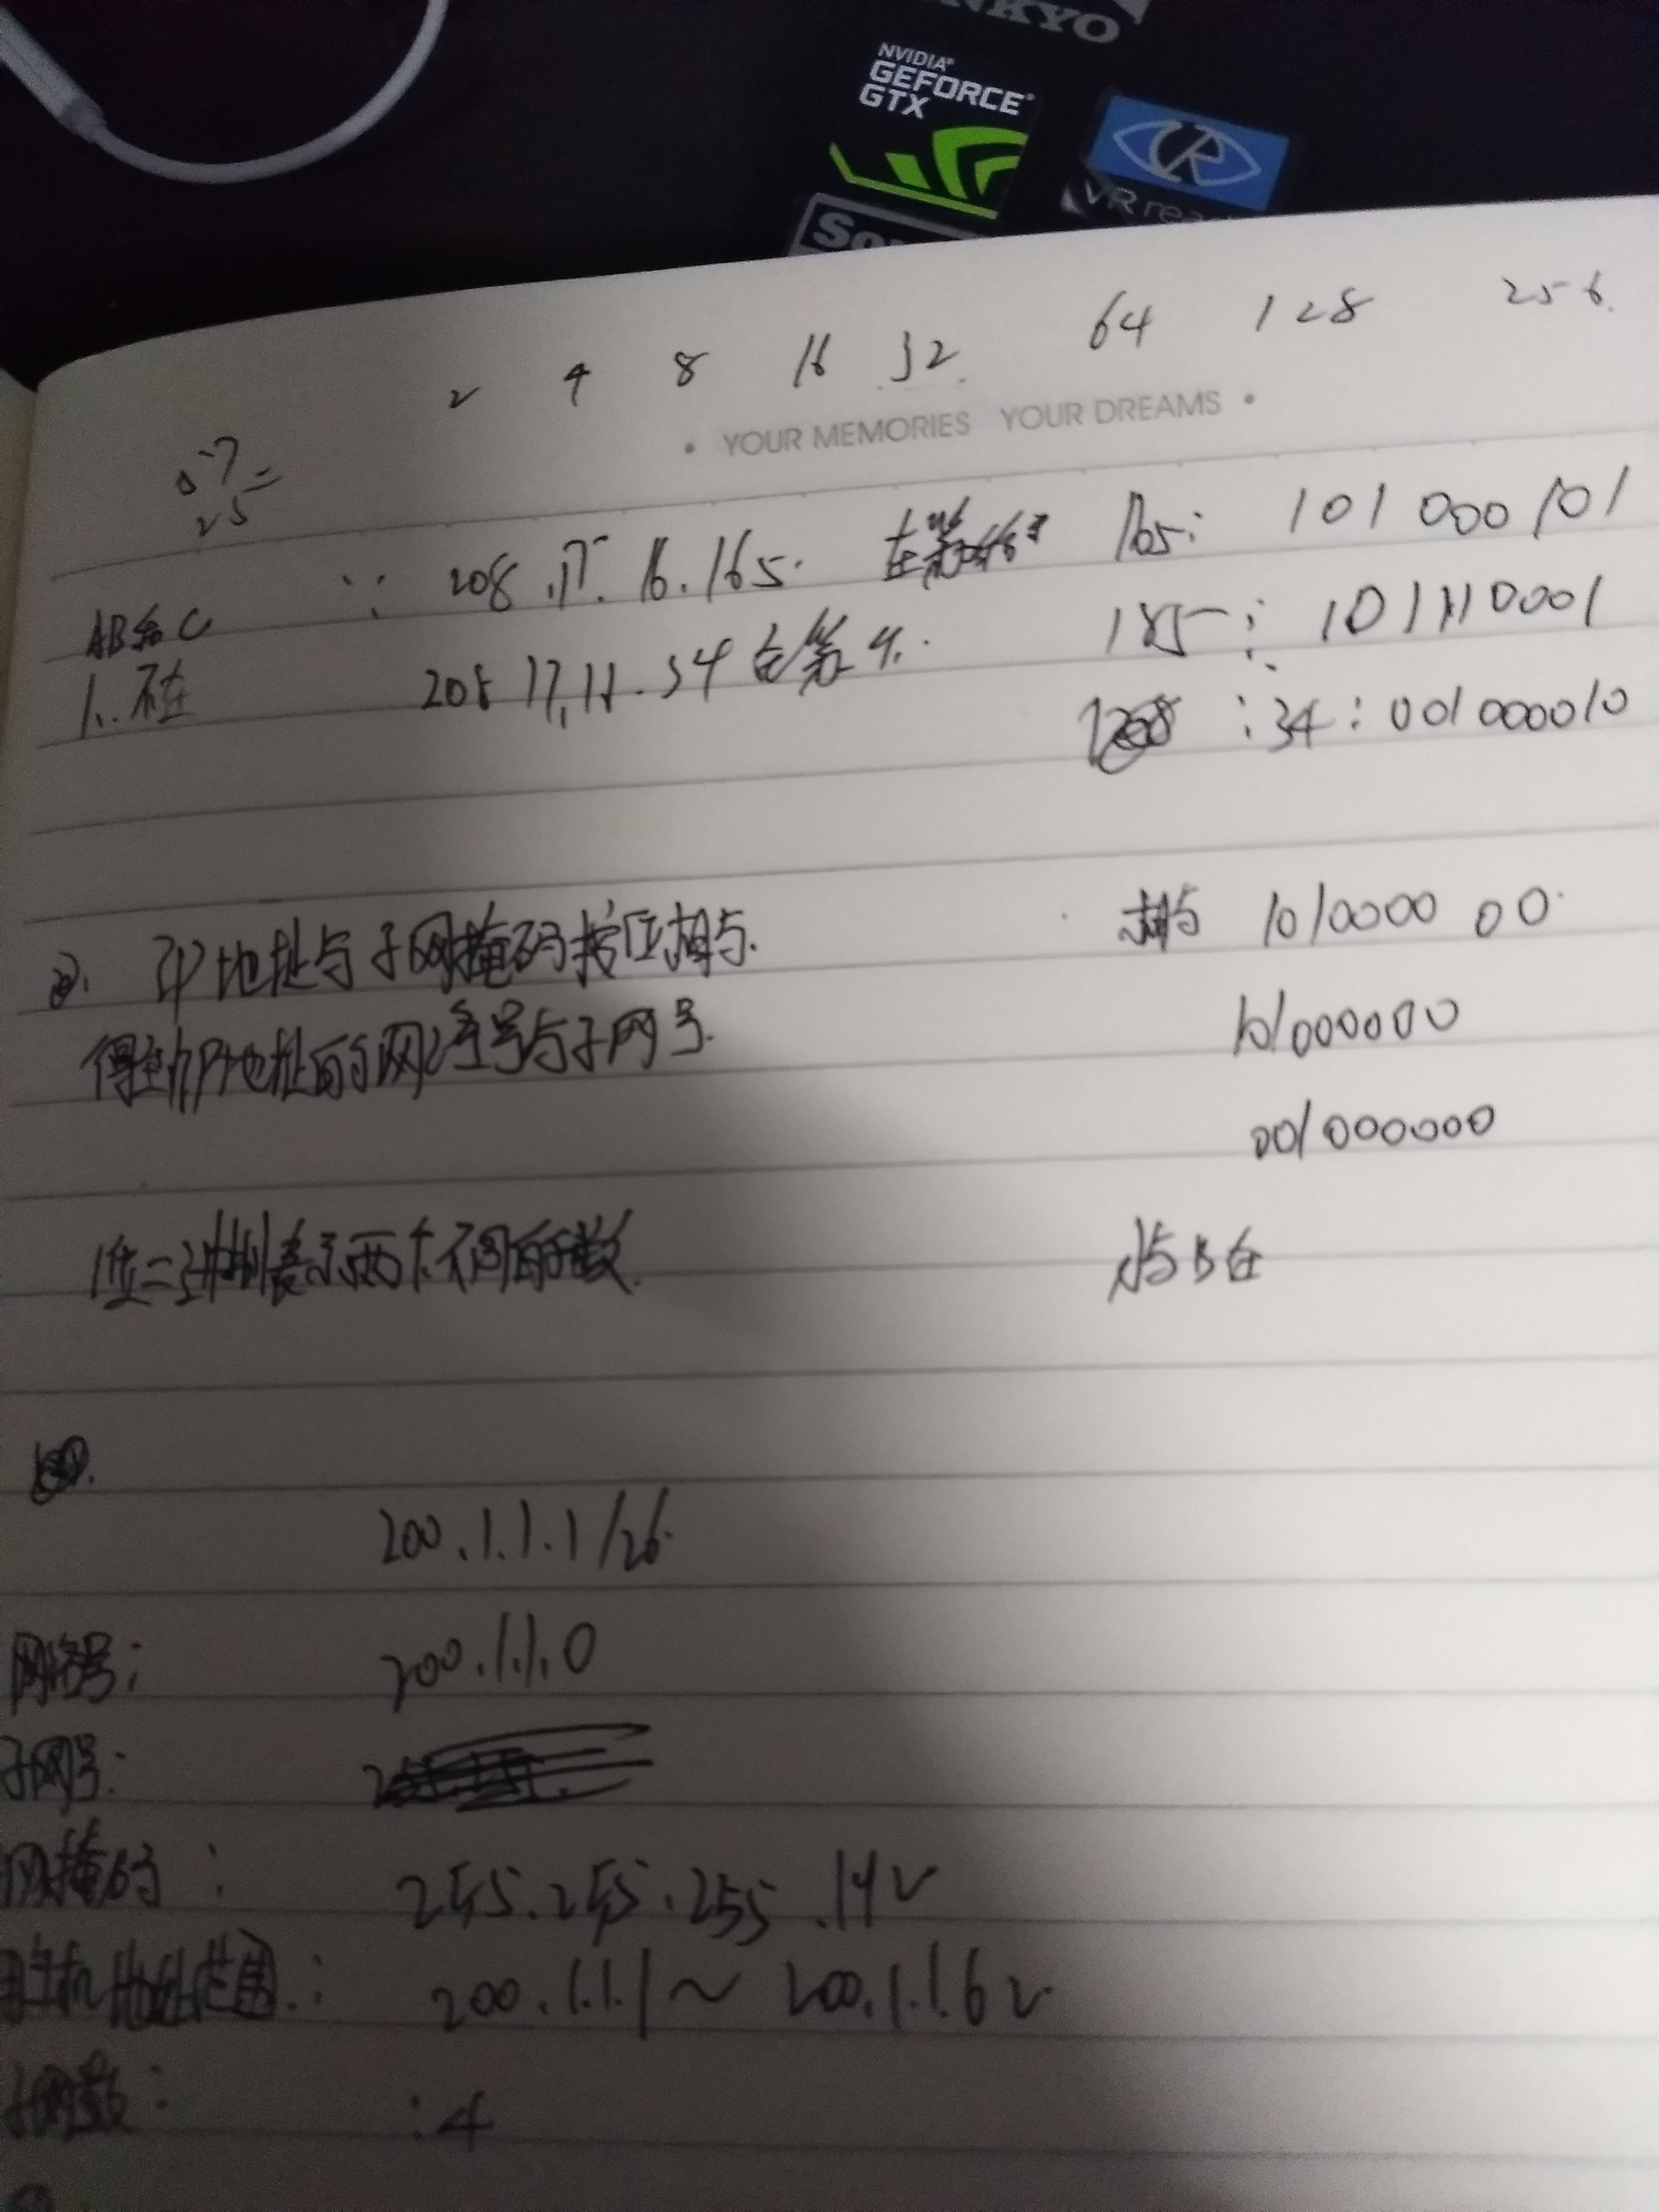 NKYO
NVIDIA®
GEFORCE®
GTX
VR rea
So
2 4 8 16 32 64 128 256.
• YOUR MEMORIES YOUR DREAMS •
25
AB和C ∵ 208.17.16.165. 在 165: 10100 0101
1. 不在 208 17,11.34 在第 185: 10111 0001
:34:00100 0010
IP地址与子网掩码按位相与. 相与 1010000 00.
得到IP地址的网络号与子网号. 101000000
001000000
1位二进制表示两个不同的数. A与B在
200.1.1.1/26.
网络号: 200.1.1.0
子网号:
网掩码: 255.255.255.192
主机地址范围: 200.1.1.1~200.1.1.62
子网数: :4